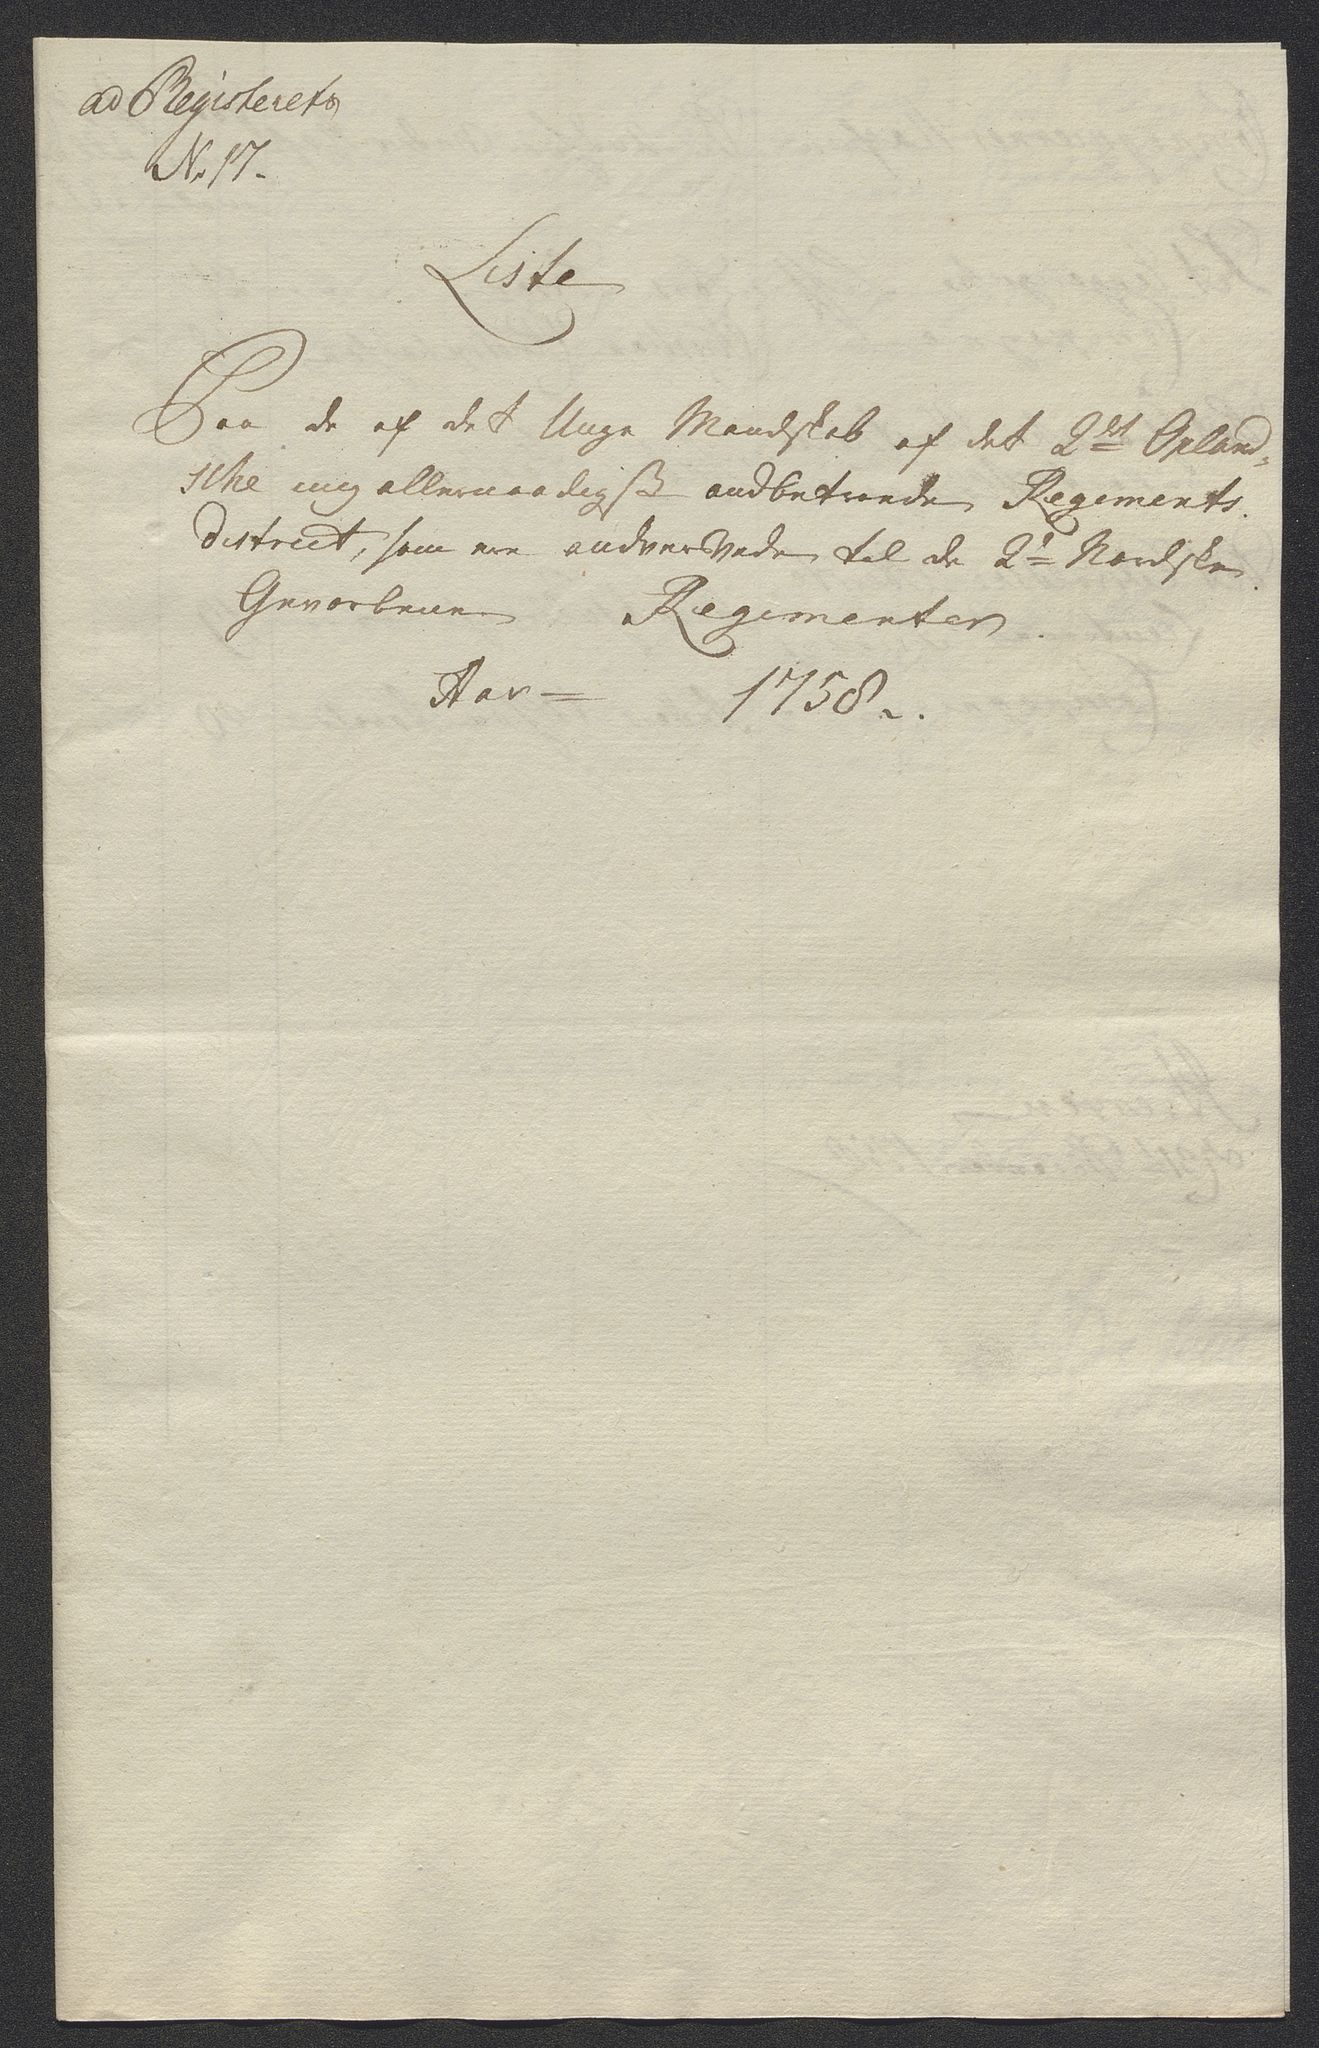 ad Registerets
No 17.
Liste
Paa de af det Unge Mandskab af det 2det Opland-
sche mig allernaadigst andbetroede Regiments.
District, som ere andvervede til de 2de Nordske
Gevorbene Regimenter.
Aar = 1758.